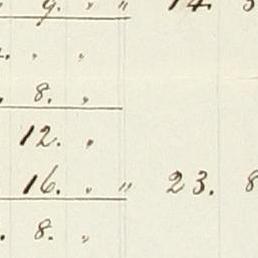 9. " " 14. 3
. " "
. 8. "
12. "
16. " " 23. 8
. 8. "